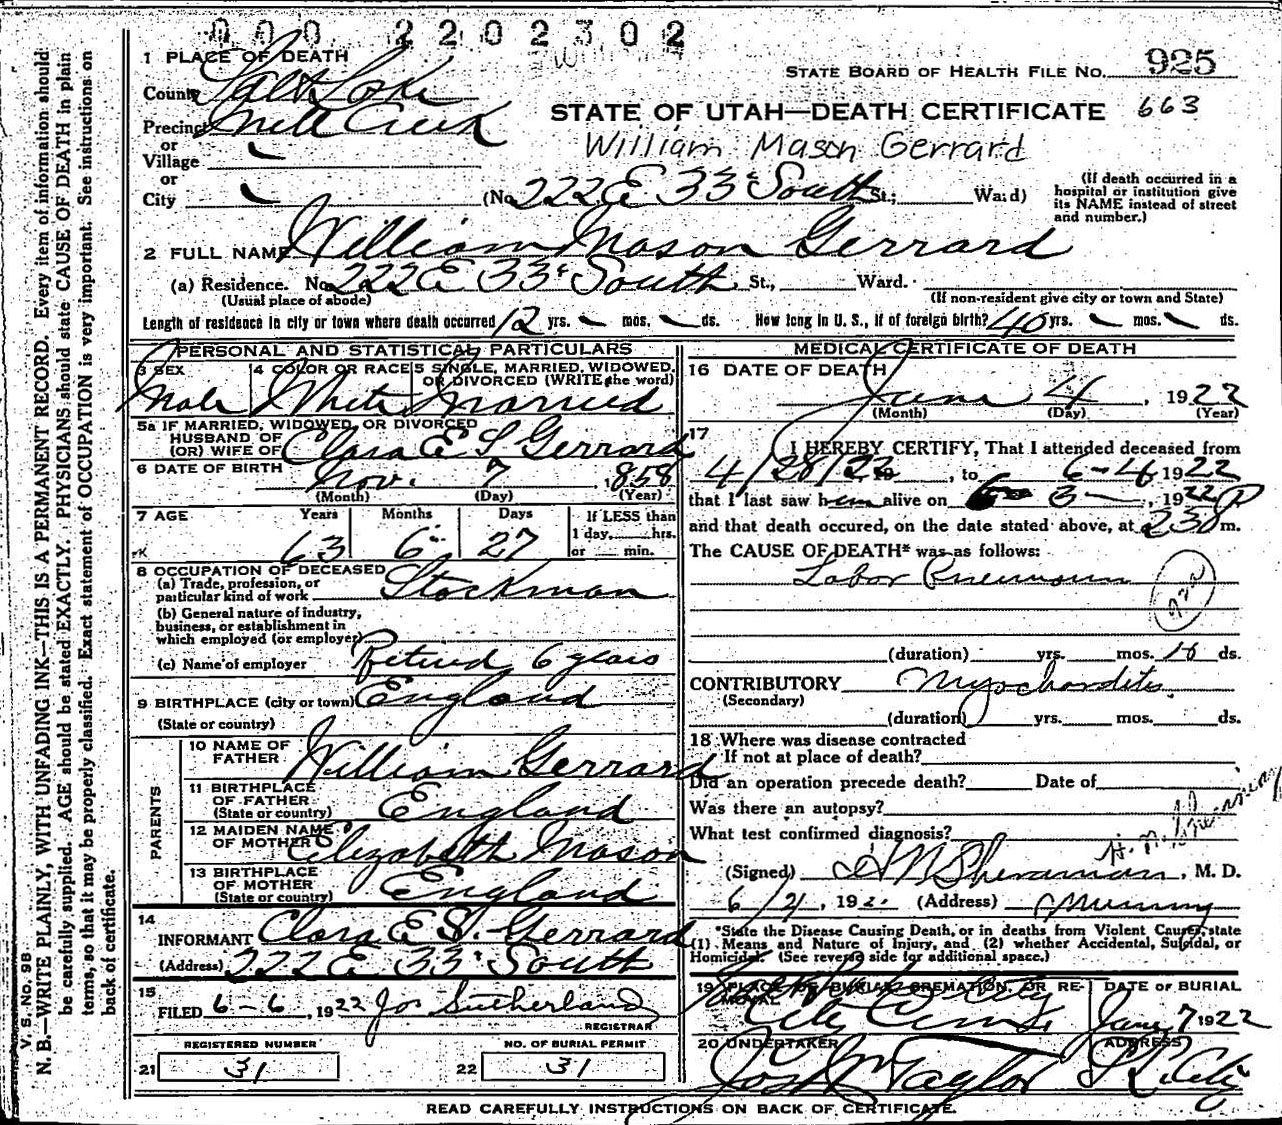 000 2202302
1 PLACE OF DEATH
STATE BOARD OF HEALTH FILE NO. 925
County Salt Lake
STATE OF UTAH—DEATH CERTIFICATE 663
Precinct Mill Creek
William Mason Gerrard
or
Village
or
City
(No. 222 E 33 South St; Ward)
(If death occurred in a
hospital or institution give
its NAME instead of street
and number.)
2 FULL NAME William Mason Gerrard
(a) Residence. No. 222 E 33 South St., Ward.
(Usual place of abode)
(If non-resident give city or town and State)
Length of residence in city or town where death occurred 12 yrs. mos. ds. How long in U. S., if of foreign birth? 40 yrs. mos. ds.
PERSONAL AND STATISTICAL PARTICULARS
3 SEX
Male
4 COLOR OR RACE
White
5 SINGLE, MARRIED, WIDOWED,
OR DIVORCED (WRITE the word)
Married
5a IF MARRIED, WIDOWED, OR DIVORCED
HUSBAND OF
(OR) WIFE OF Clara E S Gerrard
6 DATE OF BIRTH Nov. 7 1858
(Month) (Day) (Year)
7 AGE Years Months Days If LESS than
1 day, hrs.
or min.
63 6 27
8 OCCUPATION OF DECEASED
(a) Trade, profession, or
particular kind of work Stockman
(b) General nature of industry,
business, or establishment in
which employed (or employer)
(c) Name of employer Retired 6 years
9 BIRTHPLACE (city or town) England
(State or country)
PARENTS
10 NAME OF
FATHER William Gerrard
11 BIRTHPLACE
OF FATHER England
(State or country)
12 MAIDEN NAME
OF MOTHER Elizabeth Mason
13 BIRTHPLACE
OF MOTHER England
(State or country)
14
INFORMANT Clara E S. Gerrard
(Address) 222 E 33 South
15
FILED 6-6, 1922 Jos Sutherland
REGISTRAR
REGISTERED NUMBER
21 31
NO. OF BURIAL PERMIT
22 31
MEDICAL CERTIFICATE OF DEATH
16 DATE OF DEATH
June 4, 1922
(Month) (Day) (Year)
17
I HEREBY CERTIFY, That I attended deceased from
4/28/22 19, to 6-4, 1922
that I last saw him alive on 6 3, 1922
and that death occured, on the date stated above, at 230 P m.
The CAUSE OF DEATH* was as follows:
Lobar Pneumonia
(duration) yrs. mos. 10 ds.
CONTRIBUTORY Myochorditis
(Secondary)
(duration) yrs. mos. ds.
18 Where was disease contracted
If not at place of death?
Did an operation precede death? Date of
Was there an autopsy?
What test confirmed diagnosis?
(Signed) H N Sheranian, M. D.
(Address) Murray
*State the Disease Causing Death, or in deaths from Violent Causes, state
(1) Means and Nature of Injury, and (2) whether Accidental, Suicidal, or
Homicidal. (See reverse side for additional space.)
19 PLACE OF BURIAL, CREMATION, OR RE-
MOVAL
DATE OF BURIAL
City Cem June 7 1922
20 UNDERTAKER ADDRESS
Jos Wm Taylor S L City
READ CAREFULLY INSTRUCTIONS ON BACK OF CERTIFICATE.
V. S. No. 98
N. B.—WRITE PLAINLY, WITH UNFADING INK—THIS IS A PERMANENT RECORD. Every item of information should
be carefully supplied. AGE should be stated EXACTLY. PHYSICIANS should state CAUSE OF DEATH in plain
terms, so that it may be properly classified. Exact statement of OCCUPATION is very important. See instructions on
back of certificate.